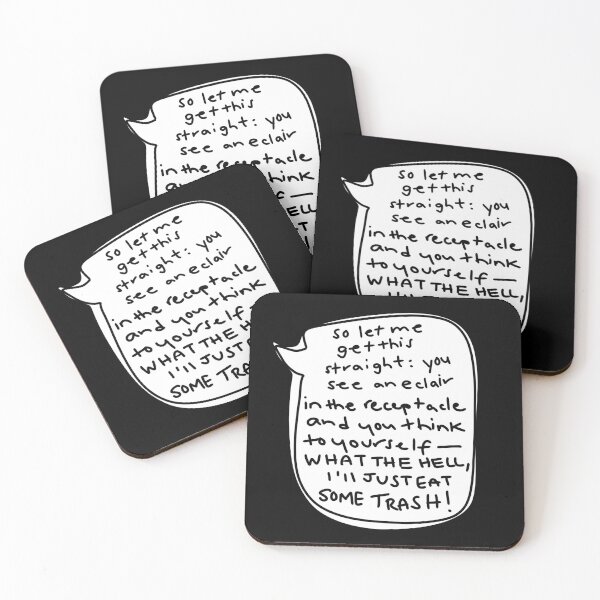 so let me
get this
straight: you
see an eclair
in the receptacle
think
HELL,
so let me
get this
straight: you
see an eclair
in the receptacle
and you think
to yourself —
WHAT THE HELL,
so let me
get this
straight: you
see an eclair
in the receptacle
and you think
to yourself
WHAT THE
I'll JUST
SOME
so let me
get this
straight: you
see an eclair
in the receptacle
and you think
to yourself —
WHAT THE HELL,
I'll JUST EAT
SOME TRASH!